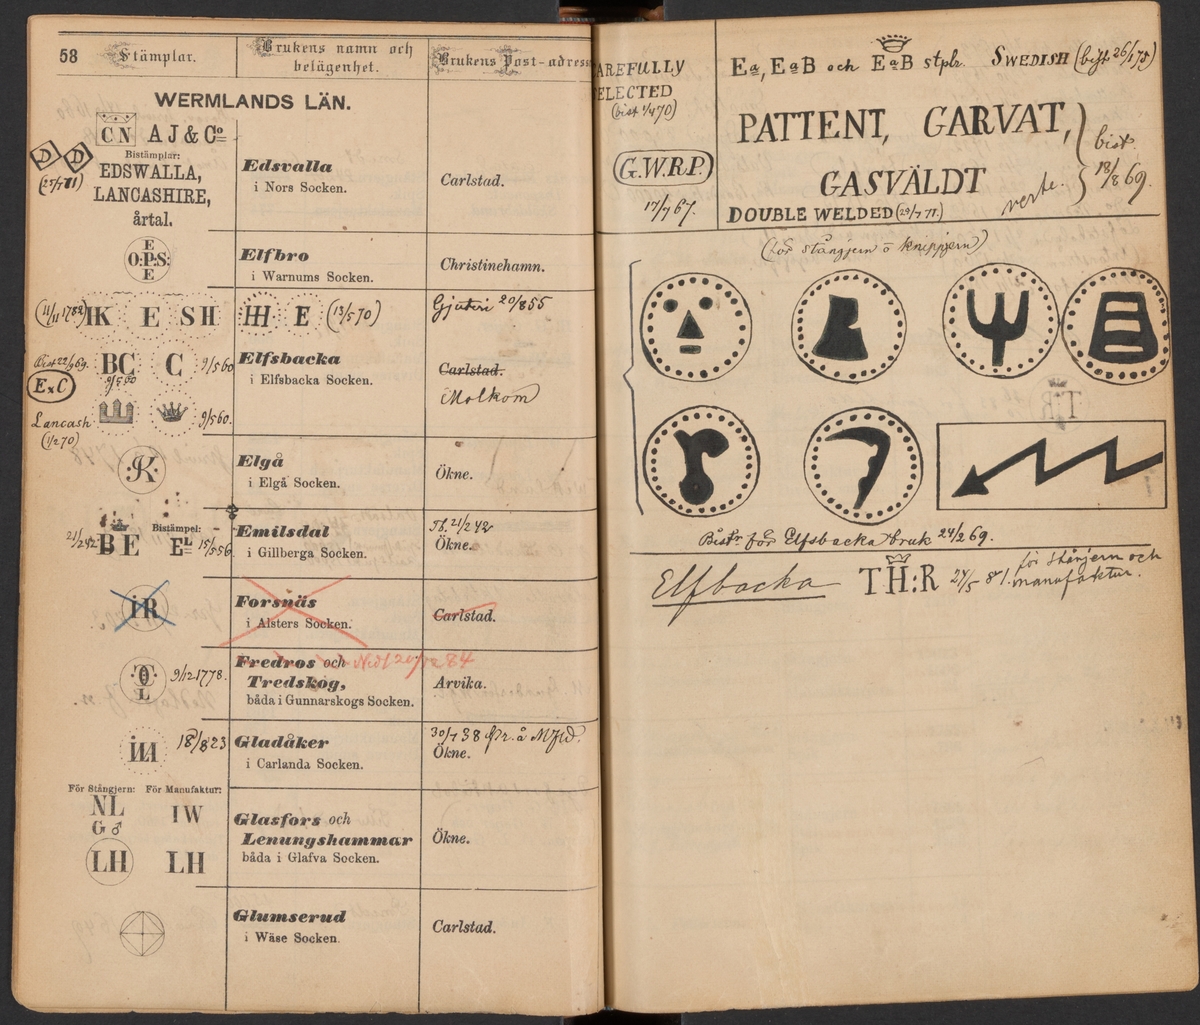 58
Stämplar.
Brukens namn och
belägenhet.
Brukens Post-adress
WERMLANDS LÄN.
CN AJ & Co
Bistämplar:
D D
EDSWALLA,
LANCASHIRE,
årtal.
Edsvalla
i Nors Socken.
Carlstad.
E
O:P:S:
E
Elfbro
i Warnums Socken.
Christinehamn.
(11/11 1782) IK E SH
HH E (13/5 70)
Gjuteri 20/8 55
BC C 9/5 60
9/5 60
E x C
Lancash
(1/2 70)
9/5 60.
Elfsbacka
i Elfsbacka Socken.
Carlstad.
Molkom
K
Elgå
i Elgå Socken.
Ökne.
21/2 42 BE
Bistämpel:
EL 15/5 56
Emilsdal
i Gillberga Socken.
21/2 42
Ökne.
iR
Forsnäs
i Alsters Socken.
Carlstad.
9/12 1778.
Fredros och
Tredskog,
båda i Gunnarskogs Socken.
84
Arvika.
18/8 23
Gladåker
i Carlanda Socken.
30/7 38
Ökne.
För Stångjern: För Manufaktur:
NL IW
G♂
LH LH
Glasfors och
Lenungshammar
båda i Glafva Socken.
Ökne.
Glumserud
i Wäse Socken.
Carlstad.
CAREFULLY
SELECTED
(bist 1/4 70)
G.W.R.P.
17/7 67.
Ea, EaB och EaB stplr. SWEDISH (bist 26/1 75)
PATTENT, GARVAT,
GASVÄLDT
bist.
18/8 69.
DOUBLE WELDED (29/7 71.)
(för stångjern o knippjern)
T:R
Bistr för Elfsbacka bruk 24/2 69.
Elfbacka
TH:R 24/5 81. för stångjern och
manufaktur.